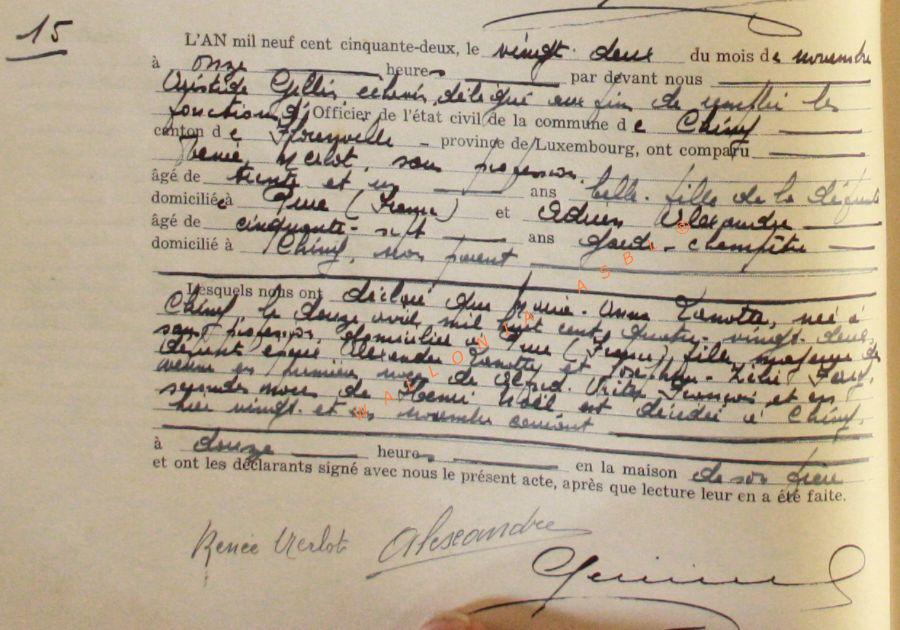 15
L'AN mil neuf cent cinquante-deux, le vingt-deux du mois de novembre
à onze heures par devant nous
Aristide Gillis échevin, délégué aux fins de remplir les
fonctions d'Officier de l'état civil de la commune de Chiny
canton de Florenville - province de Luxembourg, ont comparu
Renée Merlot, sans profession
âgé de trente et un ans belle-fille de la défunte
domiciliée à (France) et Adrien Alexandre
âgé de cinquante-sept ans garde-champêtre
domicilié à Chiny, non parent
Lesquels nous ont déclaré que Marie-Anna Zanotte, née à
Chiny, le douze avril mil huit cent quatre-vingt-deux
sans profession, domiciliée à (France), fille majeure de
défunt Alexandre Zanotte et Joséphine-Zélie
veuve en premières noces de Alfred Victor François et en
secondes noces de Henri Noël est décédée à Chiny,
hier vingt-et-un novembre courant
à douze heures en la maison de son frère
et ont les déclarants signé avec nous le présent acte, après que lecture leur en a été faite.
Renée Merlot Alexandre
WALLONIA ASBL ©